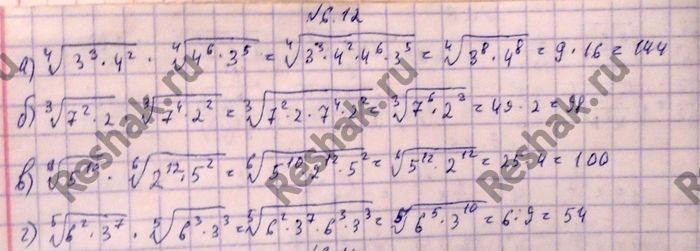 №6.12
а) ⁴√(3³·4²) · ⁴√(4⁶·3⁵) = ⁴√(3³·4²·4⁶·3⁵) = ⁴√(3⁸·4⁸) = 9·16 = 144
б) ³√(7²·2) · ³√(7⁴·2²) = ³√(7²·2·7⁴·2²) = ³√(7⁶·2³) = 49·2 = 98
в) ⁶√(5¹⁰) · ⁶√(2¹²·5²) = ⁶√(5¹⁰·2¹²·5²) = ⁶√(5¹²·2¹²) = 25·4 = 100
г) ⁵√(6²·3⁷) · ⁵√(6³·3³) = ⁵√(6²·3⁷·6³·3³) = ⁵√(6⁵·3¹⁰) = 6·9 = 54
Reshak.ru Reshak.ru Reshak.ru